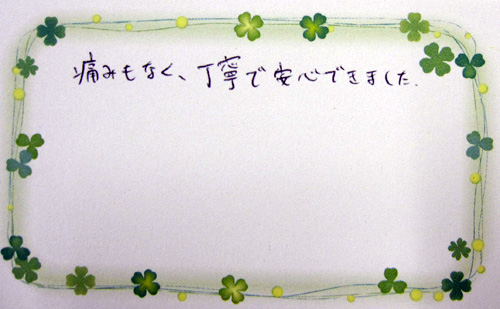 痛みもなく、丁寧で安心できました.